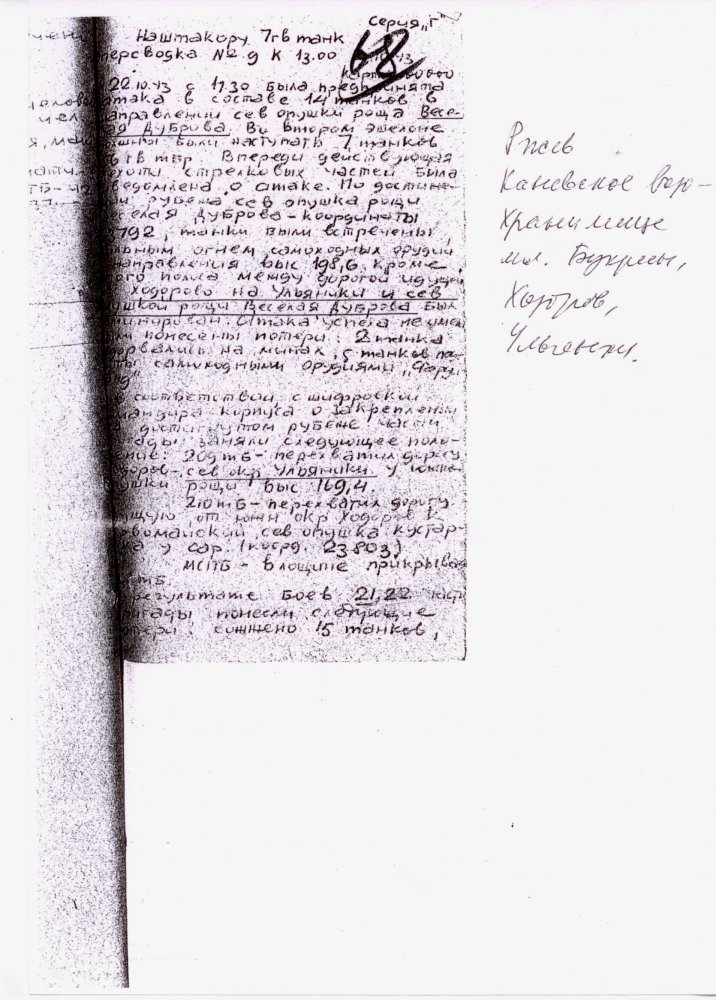 Серия „Г"
Наштакору 7гв танк
персводка № 9 к 13.00
68
карта
22.10.43 с 11.30 была предпринята
атака в составе 14 танков в
направлении сев опушки роща Весе-
ая Дуброва. Во втором эшелоне
должны были наступать 7 танков
гв тбр. Впереди действующая
пехота стрелковых частей была
уведомлена о атаке. По достиже-
рубежа сев опушка рощи
еселая Дуброва – координаты
792, танки были встречены
льным огнем самоходных орудий
направления выс 198,6. Кроме
ого полоса между дорогой идущей
Ходорово на Ульяники и сев
пушкой рощи Веселая Дуброва был
минирован. Атака успеха не имела
понесены потери: 2 танка
одорвались на минах, 5 танков
ты самоходными орудиями „Ферди
нд"
В соответствии с шифровкой
командира корпуса о закреплении
достигнутом рубеже части
гады заняли следующее поло-
ение: 209тб – перехватил дорогу
одоров – сев окр Ульяники у южне
пушки рощи выс 169,4
210тб – перехватил дорогу
щую от южн окр Ходоров к
рвомайский, сев опушка кустар-
ка у сар. (коорд. 23803)
МСПБ – в лощине прикрывая
тб.
результате боев 21,22
игады понесли следующие
отери: сожжено 15 танков,
Ржев
Каневское водо-
хранилище
мл. Букрины,
Ходоров,
Ульяники.